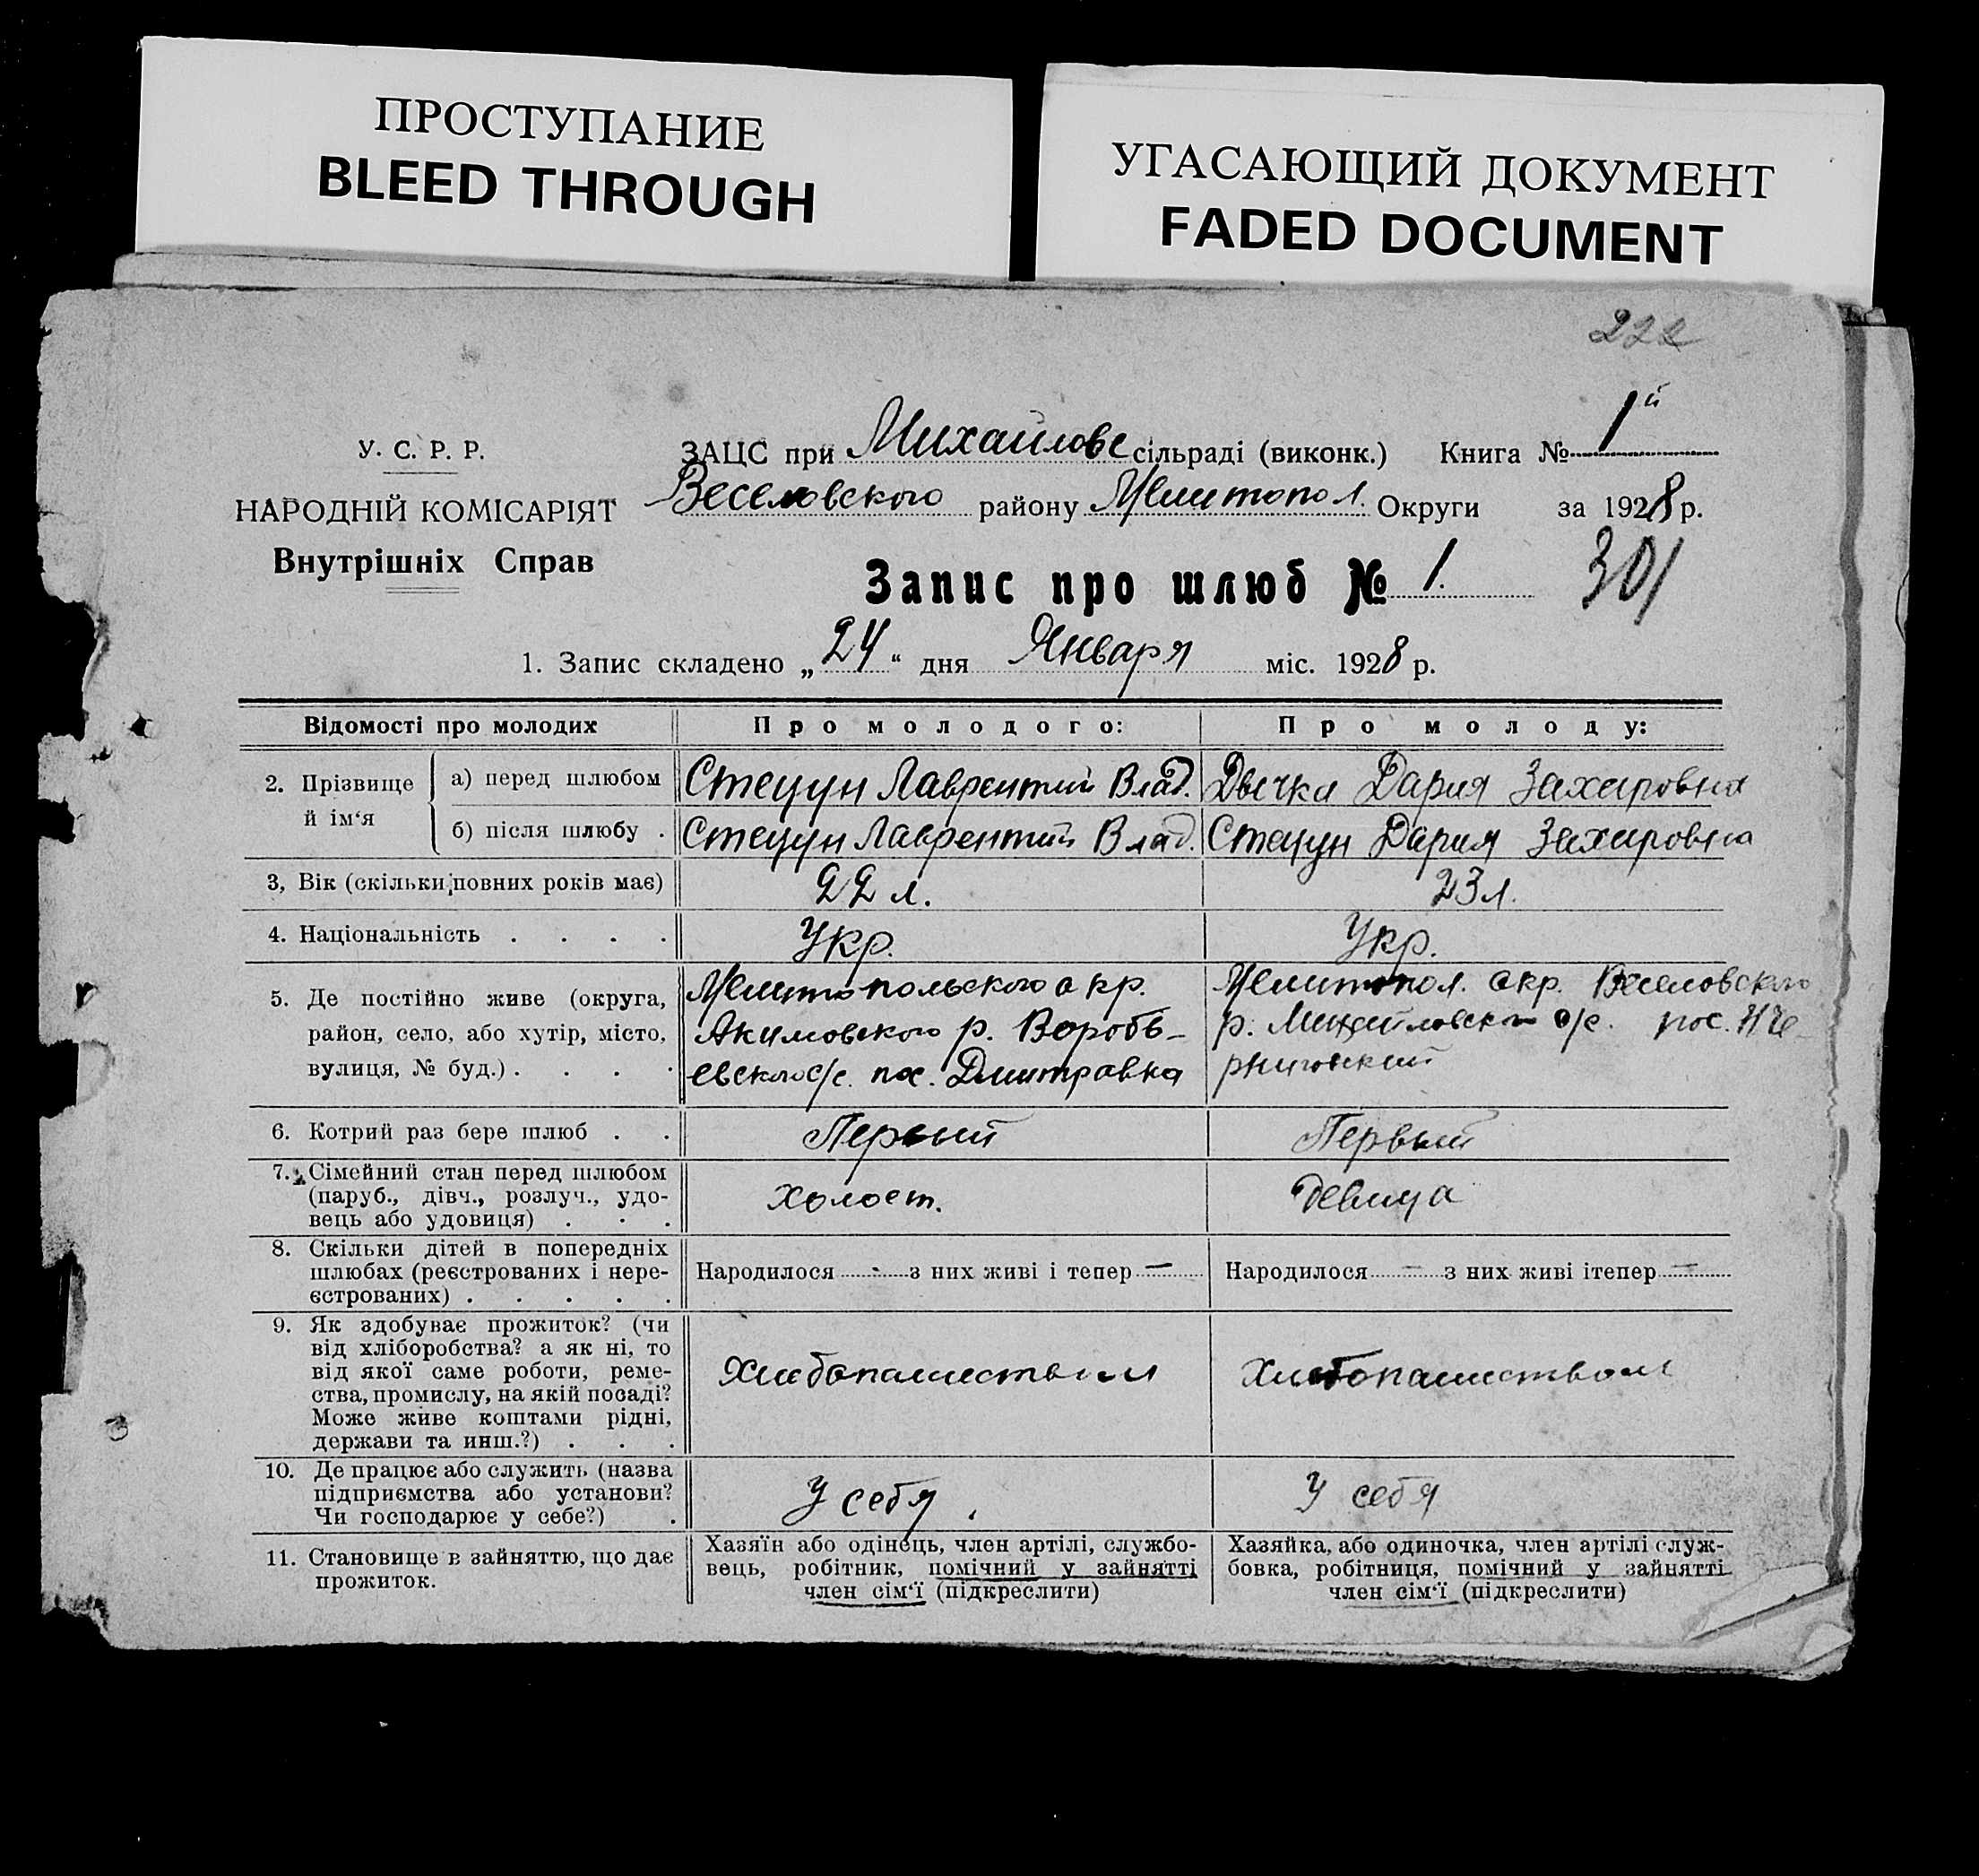 ПРОСТУПАНИЕ
BLEED THROUGH
УГАСАЮЩИЙ ДОКУМЕНТ
FADED DOCUMENT
222
У. С. Р. Р.
НАРОДНІЙ КОМІСАРІЯТ
Внутрішніх Справ
ЗАЦС при Михайлове сільраді (виконк.) Книга № 1й
Веселовского району Мелитопол. Округи за 1928 р.
Запис про шлюб № 1.
301
1. Запис складено „24“ дня Января міс. 1928 р.
Відомості про молодих Про молодого: Про молоду:
2. Прізвище й ім‘я
а) перед шлюбом Стецун Лаврентий Влад. Двичка Дария Захаровна
б) після шлюбу . Стецун Лаврентий Влад. Стецун Дария Захаровна
3, Вік (скільки повних років має) 22 л. 23 л.
4. Національність . . . . Укр. Укр.
5. Де постійно живе (округа,
район, село, або хутір, місто,
вулиця, № буд.) . . . .
Мелитопольского окр.
Акимовского р. Воробь-
евского с/с. пос. Дмитровка
Мелитопол. окр. Веселовского
р. Михайловского с/с. пос. Че-
рниговский
6. Котрий раз бере шлюб . . Первый Первый
7. Сімейний стан перед шлюбом
(паруб., дівч., розлуч., удо-
вець або удовиця) . . .
Холост. Девица
8. Скільки дітей в попередніх
шлюбах (реєстрованих і нере-
єстрованих) . . . . .
Народилося - з них живі і тепер —
Народилося — з них живі ітепер —
9. Як здобуває прожиток? (чи
від хліборобства? а як ні, то
від якої саме роботи, реме-
ства, промислу, на якій посаді?
Може живе коштами рідні,
держави та инш.?) . . .
Хлебопашеством Хлебопашеством
10. Де працює або служить (назва
підприємства або установи?
Чи господарює у себе?) .
У себя. У себя
11. Становище в зайняттю, що дає
прожиток.
Хазяїн або одінець, член артілі, службо-
вець, робітник, помічний у зайнятті
член сім‘ї (підкреслити)
Хазяйка, або одиночка, член артілі служ-
бовка, робітниця, помічний у зайнятті
член сім‘ї (підкреслити)